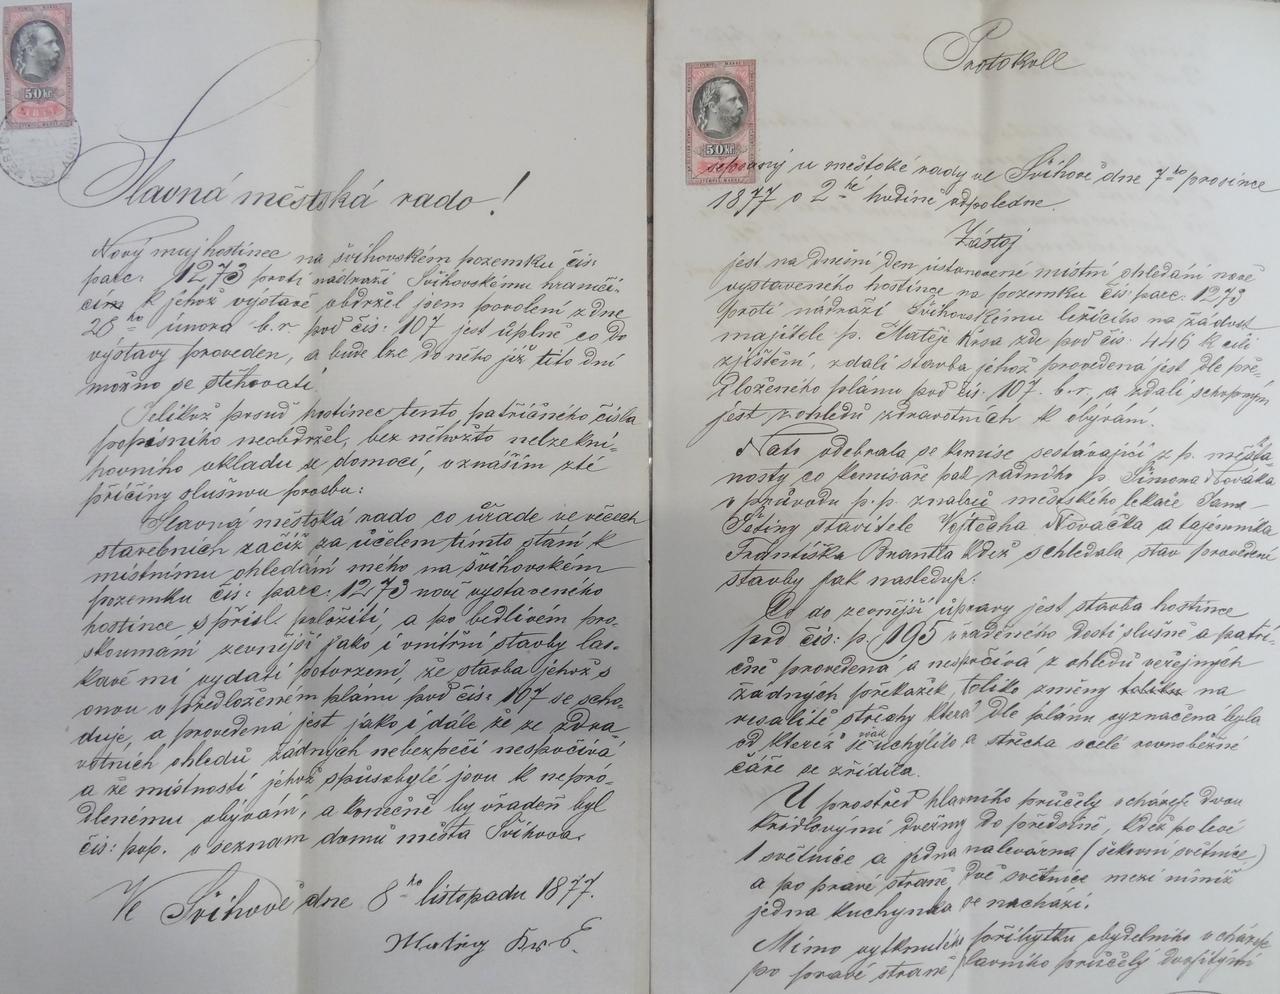 50 Kr.
1877
Slavná městská rado!
Nový můj hostinec na švihovském pozemku čís:
parc. 1273 proti nádraží Švihovskému hraničí-
cím k jehož výstavě obdržel jsem povolení z dne
28ho února b. r. pod čís: 107 jest úplně co do
výstavy proveden, a bude lze do něho již tito dni
možno se stěhovati.
Jelikož posud hostinec tento patřičného čísla
popisného neobdržel, bez něhožto nelze kni-
hovního vkladu se domoci, vznáším z té
příčiny slušnou prosbu:
Slavná městská rado co úřade ve věcech
stavebních račiž za účelem tímto stání k
místnímu ohledání mého na švihovském
pozemku čís: parc. 1273 nově vystaveného
hostince s přísl. položiti, a po bedlivém pro-
skoumání zevnější jako i vnitřní stavby las-
kavě mi vydati potvrzení, že stavba jehož s
onou v předloženém plánu pod čís: 107 se scho-
duje, a provedena jest jako i dále že ze zdra-
votních ohledů žádných nebezpečí nespočívá
a že místností jehož spůsobylé jsou k nepro-
dlenému obývání, a konečně by vřaděn byl
čís: pop. v seznam domů města Švihova.
Ve Švihově dne 8ho listopadu 1877.
Matěj
Protokoll
50 Kr.
sepsaný u městské rady ve Švihově dne 7ho prosince
1877 o 2hé hodině odpoledne.
Zástoj
jest na dnešní den ustanovené místní ohledání nově
vystaveného hostince na pozemku čís: parc: 1273
proti nádraží Švihovskému ležícího na žádost
majitele p. Matěje Krsa zde pod čís: 446 k cíli
zjištění, zdali stavba jehož provedena jest dle pře-
dloženého plánu pod čís: 107. b. r. a zdali schopným
jest z ohledů zdravotních k obývání.
Nato odebrala se komise sestávající z p. měšťa-
nosty co komisaře pak radního p. Šimona Nováka
v průvodu p. p. znalců městského lékaře Jana
stavitele Vojtěcha Nováčka a tajemníka
Františka Brantla kdež schledala stav provedení
stavby jak následuje:
Co do zevnější úpravy jest stavba hostince
pod čís: p. 195 vřaděného dosti slušně a patři-
čně provedena a nespočívá z ohledů veřejných
žádných překažek, toliko změny na
resalitě střechy která dle plánu vyznačená byla
od kteréž se však uchýlilo a střecha v celé rovnoběžné
čáře se zřídila.
U prostřed hlavního průčelý schází se dvou
křídlovými dveřmy do předsíně, kdež po levé
1 světnice a jedna nalevárna (šekovní světnice)
a po pravé straně dvě světnice mezi nimiž
jedna kuchynka se nachází.
Mimo vytknutého příbytku obydelního vchází se
po pravé straně hlavního průčelý dvojitými